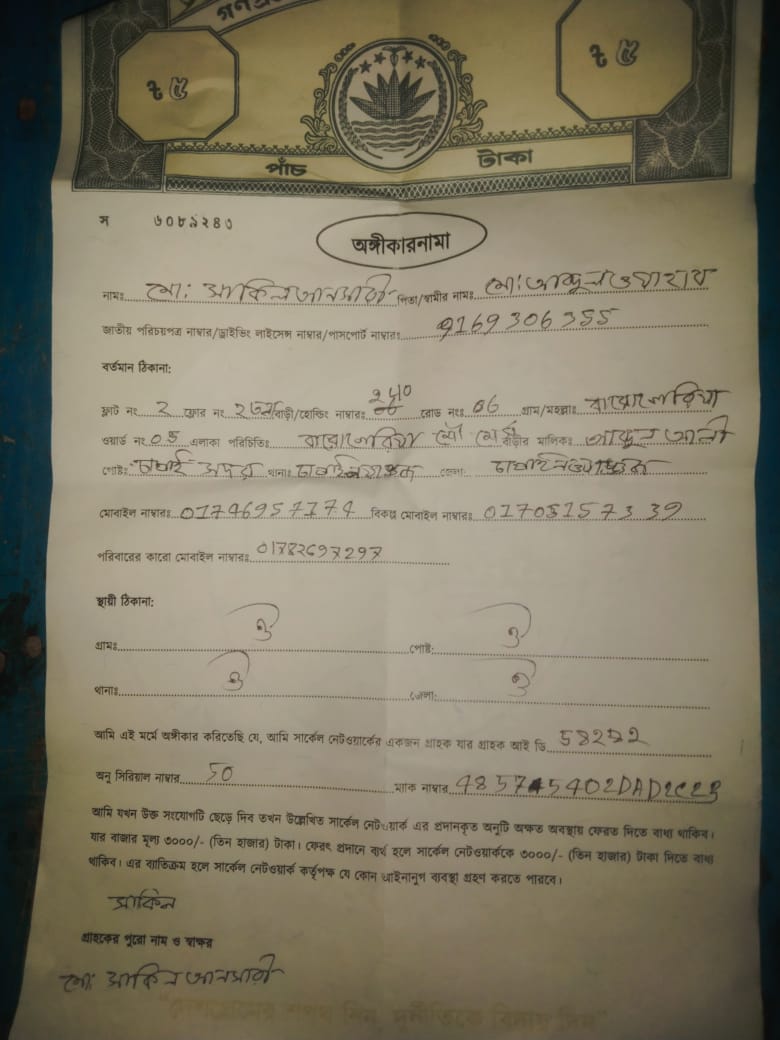 ৳ ৫
৳ ৫
পাঁচ টাকা
স ৬০৮৯২৪৩
অঙ্গীকারনামা
নামঃ মো: সাকিল আনসারী পিতা/স্বামীর নামঃ মো: আব্দুল ওয়াহাব
জাতীয় পরিচয়পত্র নাম্বার/ড্রাইভিং লাইসেন্স নাম্বার/পাসপোর্ট নাম্বারঃ 9169306355
বর্তমান ঠিকানা:
ফ্লাট নং 2 ফ্লোর নং ২তলা বাড়ী/হোল্ডিং নাম্বারঃ রোড নংঃ 06 গ্রাম/মহল্লাঃ
ওয়ার্ড নং 05 এলাকা পরিচিতিঃ বাড়ীর মালিকঃ আব্দুল আলী
পোষ্টঃ সদর থানাঃ জেলা:
মোবাইল নাম্বারঃ 01746957174 বিকল্প মোবাইল নাম্বারঃ 01705157339
পরিবারের কারো মোবাইল নাম্বারঃ 01782697297
স্থায়ী ঠিকানা:
গ্রামঃ ঐ পোষ্ট: ঐ
থানাঃ ঐ জেলা: ঐ
আমি এই মর্মে অঙ্গীকার করিতেছি যে, আমি সার্কেল নেটওয়ার্কের একজন গ্রাহক যার গ্রাহক আই ডি 58272
অনু সিরিয়াল নাম্বার 50 ম্যাক নাম্বার
আমি যখন উক্ত সংযোগটি ছেড়ে দিব তখন উল্লেখিত সার্কেল নেটওয়ার্ক এর প্রদানকৃত অনুটি অক্ষত অবস্থায় ফেরত দিতে বাধ্য থাকিব।
যার বাজার মূল্য ৩০০০/- (তিন হাজার) টাকা। ফেরৎ প্রদানে ব্যর্থ হলে সার্কেল নেটওয়ার্ককে ৩০০০/- (তিন হাজার) টাকা দিতে বাধ্য
থাকিব। এর ব্যতিক্রম হলে সার্কেল নেটওয়ার্ক কর্তৃপক্ষ যে কোন আইনানুগ ব্যবস্থা গ্রহণ করতে পারবে।
সাকিল
গ্রাহকের পুরো নাম ও স্বাক্ষর
মো: সাকিল আনসারী
"দেশপ্রেমের শপথ নিন, দুর্নীতিকে বিদায় দিন"